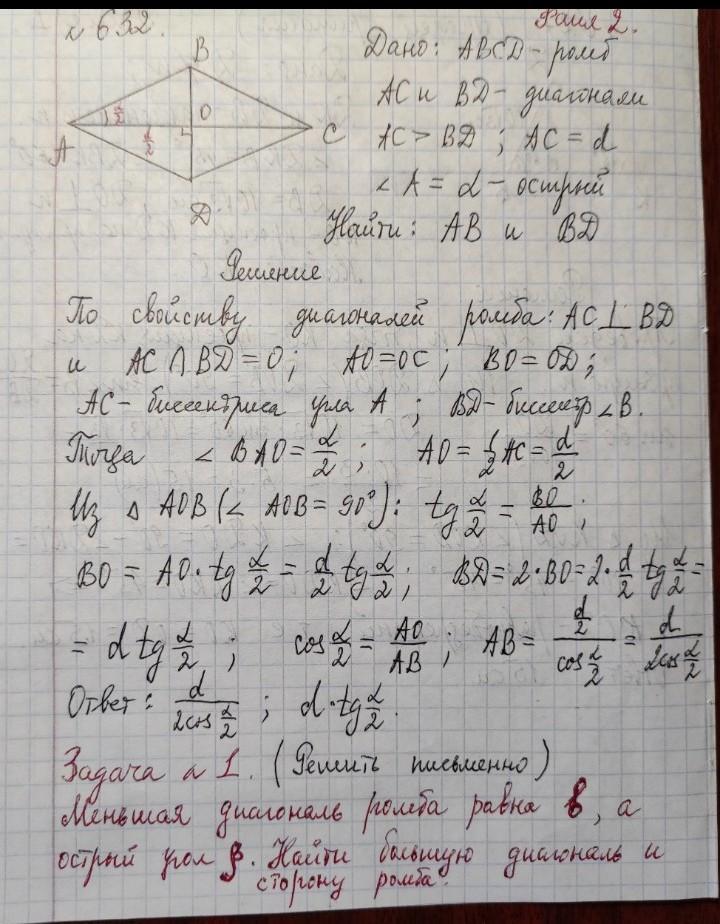 № 632.
Файл 2.
Дано: ABCD – ромб
AC и BD – диагонали
AC > BD ; AC = d
∠A = α – острый
Найти: AB и BD
B
O
A
C
D
α/2
d/2
Решение
По свойству диагоналей ромба: AC ⊥ BD
и AC ∩ BD = O ; AO = OC ; BO = OD ;
AC – биссектриса угла A ; BD – биссектр ∠B.
Тогда ∠BAO = α/2 ; AO = 1/2 AC = d/2
Из △ AOB (∠ AOB = 90°): tg α/2 = BO/AO ;
BO = AO · tg α/2 = d/2 tg α/2 ; BD = 2 · BO = 2 · d/2 tg α/2 =
= d tg α/2 ; cos α/2 = AO/AB ; AB = (d/2)/(cos α/2) = d/(2cos α/2)
Ответ: d/(2cos α/2) ; d · tg α/2.
Задача № 1. (Решить письменно)
Меньшая диагональ ромба равна b, а
острый угол β. Найти большую диагональ и
сторону ромба.